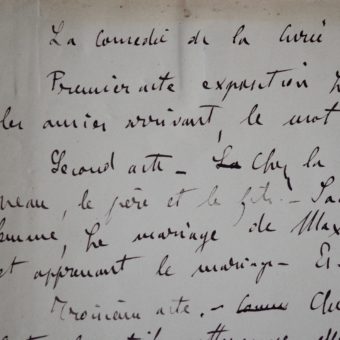 La comedie de la Curée
Premier acte exposition
les amies arrivant, le mot
Second acte - La Chez la
neau, le père et le fils. - Sa
femme, Le mariage de Max
et apprenant le mariage - E
Troisième acte. - Comm Che